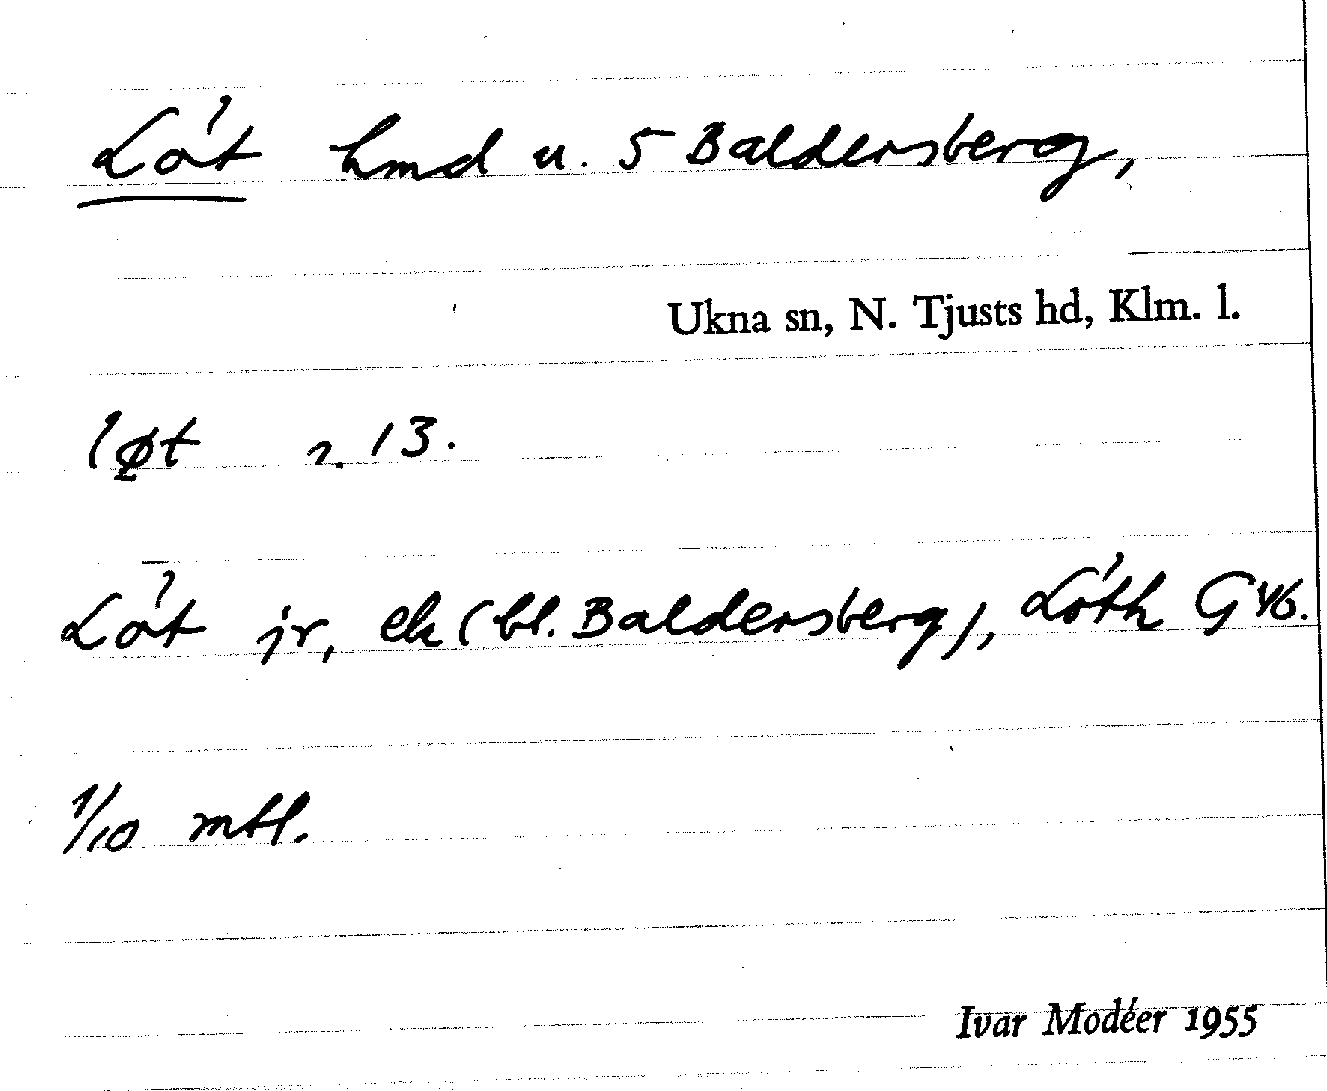 Löt hmd u. 5 Baldersberg,
Ukna sn, N. Tjusts hd, Klm. l.
lø̜t r. 13.
Löt jr, ek (bl. Baldersberg), Löth G 46.
1/10 mtl.
Ivar Modéer 1955